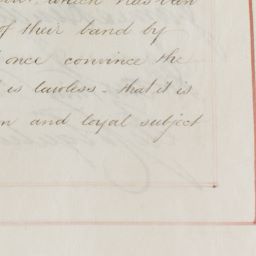 which has ban
of their band by
once convince the
is lawless - that it is
and loyal subject